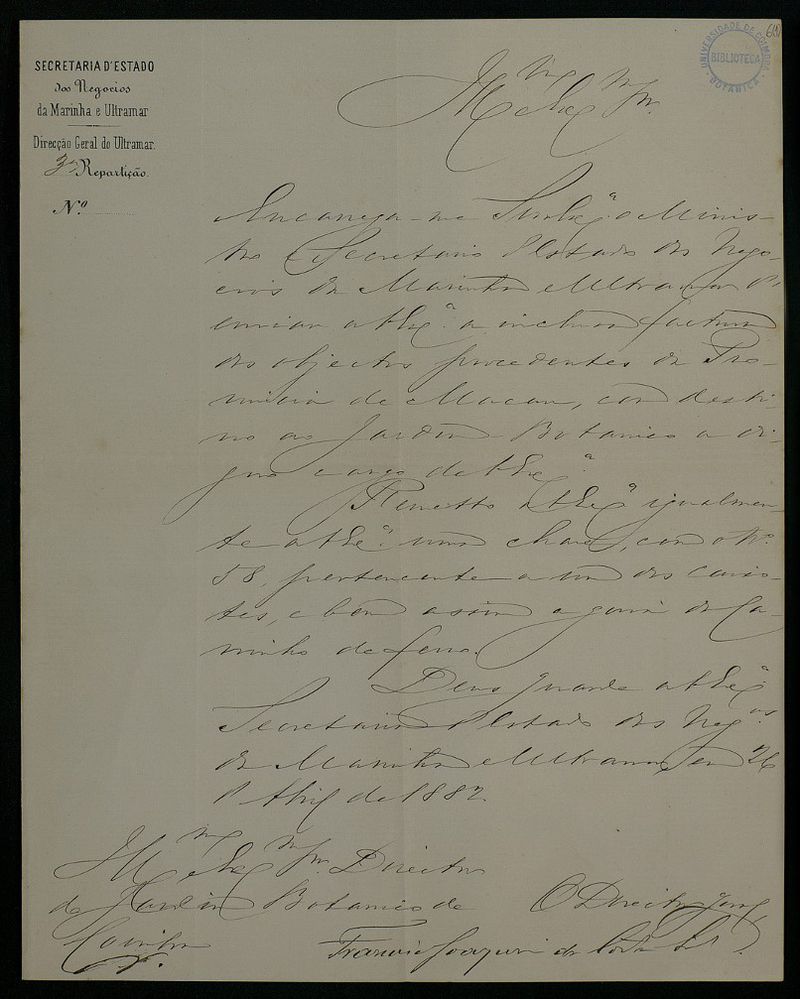 SECRETARIA D'ESTADO
dos Negocios
da Marinha e Ultramar
Direcção Geral do Ultramar.
3ª Repartição.
Nº
UNIVERSIDADE DE COIMBRA
BIBLIOTECA
BOTANICA
Illmo e Exmo Snr.
Encarrega-me Sua Exª o Minis-
tro e Secretario d'Estado dos Nego-
cios da Marinha e Ultramar d'
enviar a V. Exª a inclusa factura
dos objectos procedentes da Pro-
vincia de Macau, com desti-
no ao Jardim Botanico a di-
gno cargo de V. Exª
Remetto a V. Exª igualmen-
te a V. Exª uma chave, com o Nº
58, pertencente a um dos caixo-
tes, e bem assim a guia do Ca-
minho de ferro.
Deus Guarde a V. Exª
Secretaria d'Estado dos Negos
da Marinha e Ultramar, em 26
d'Abril de 1882.
Illmo e Exmo Snr. Director
do Jardim Botanico de
Coimbra
O Director Geral
Francisco Joaquim da Costa e Sª